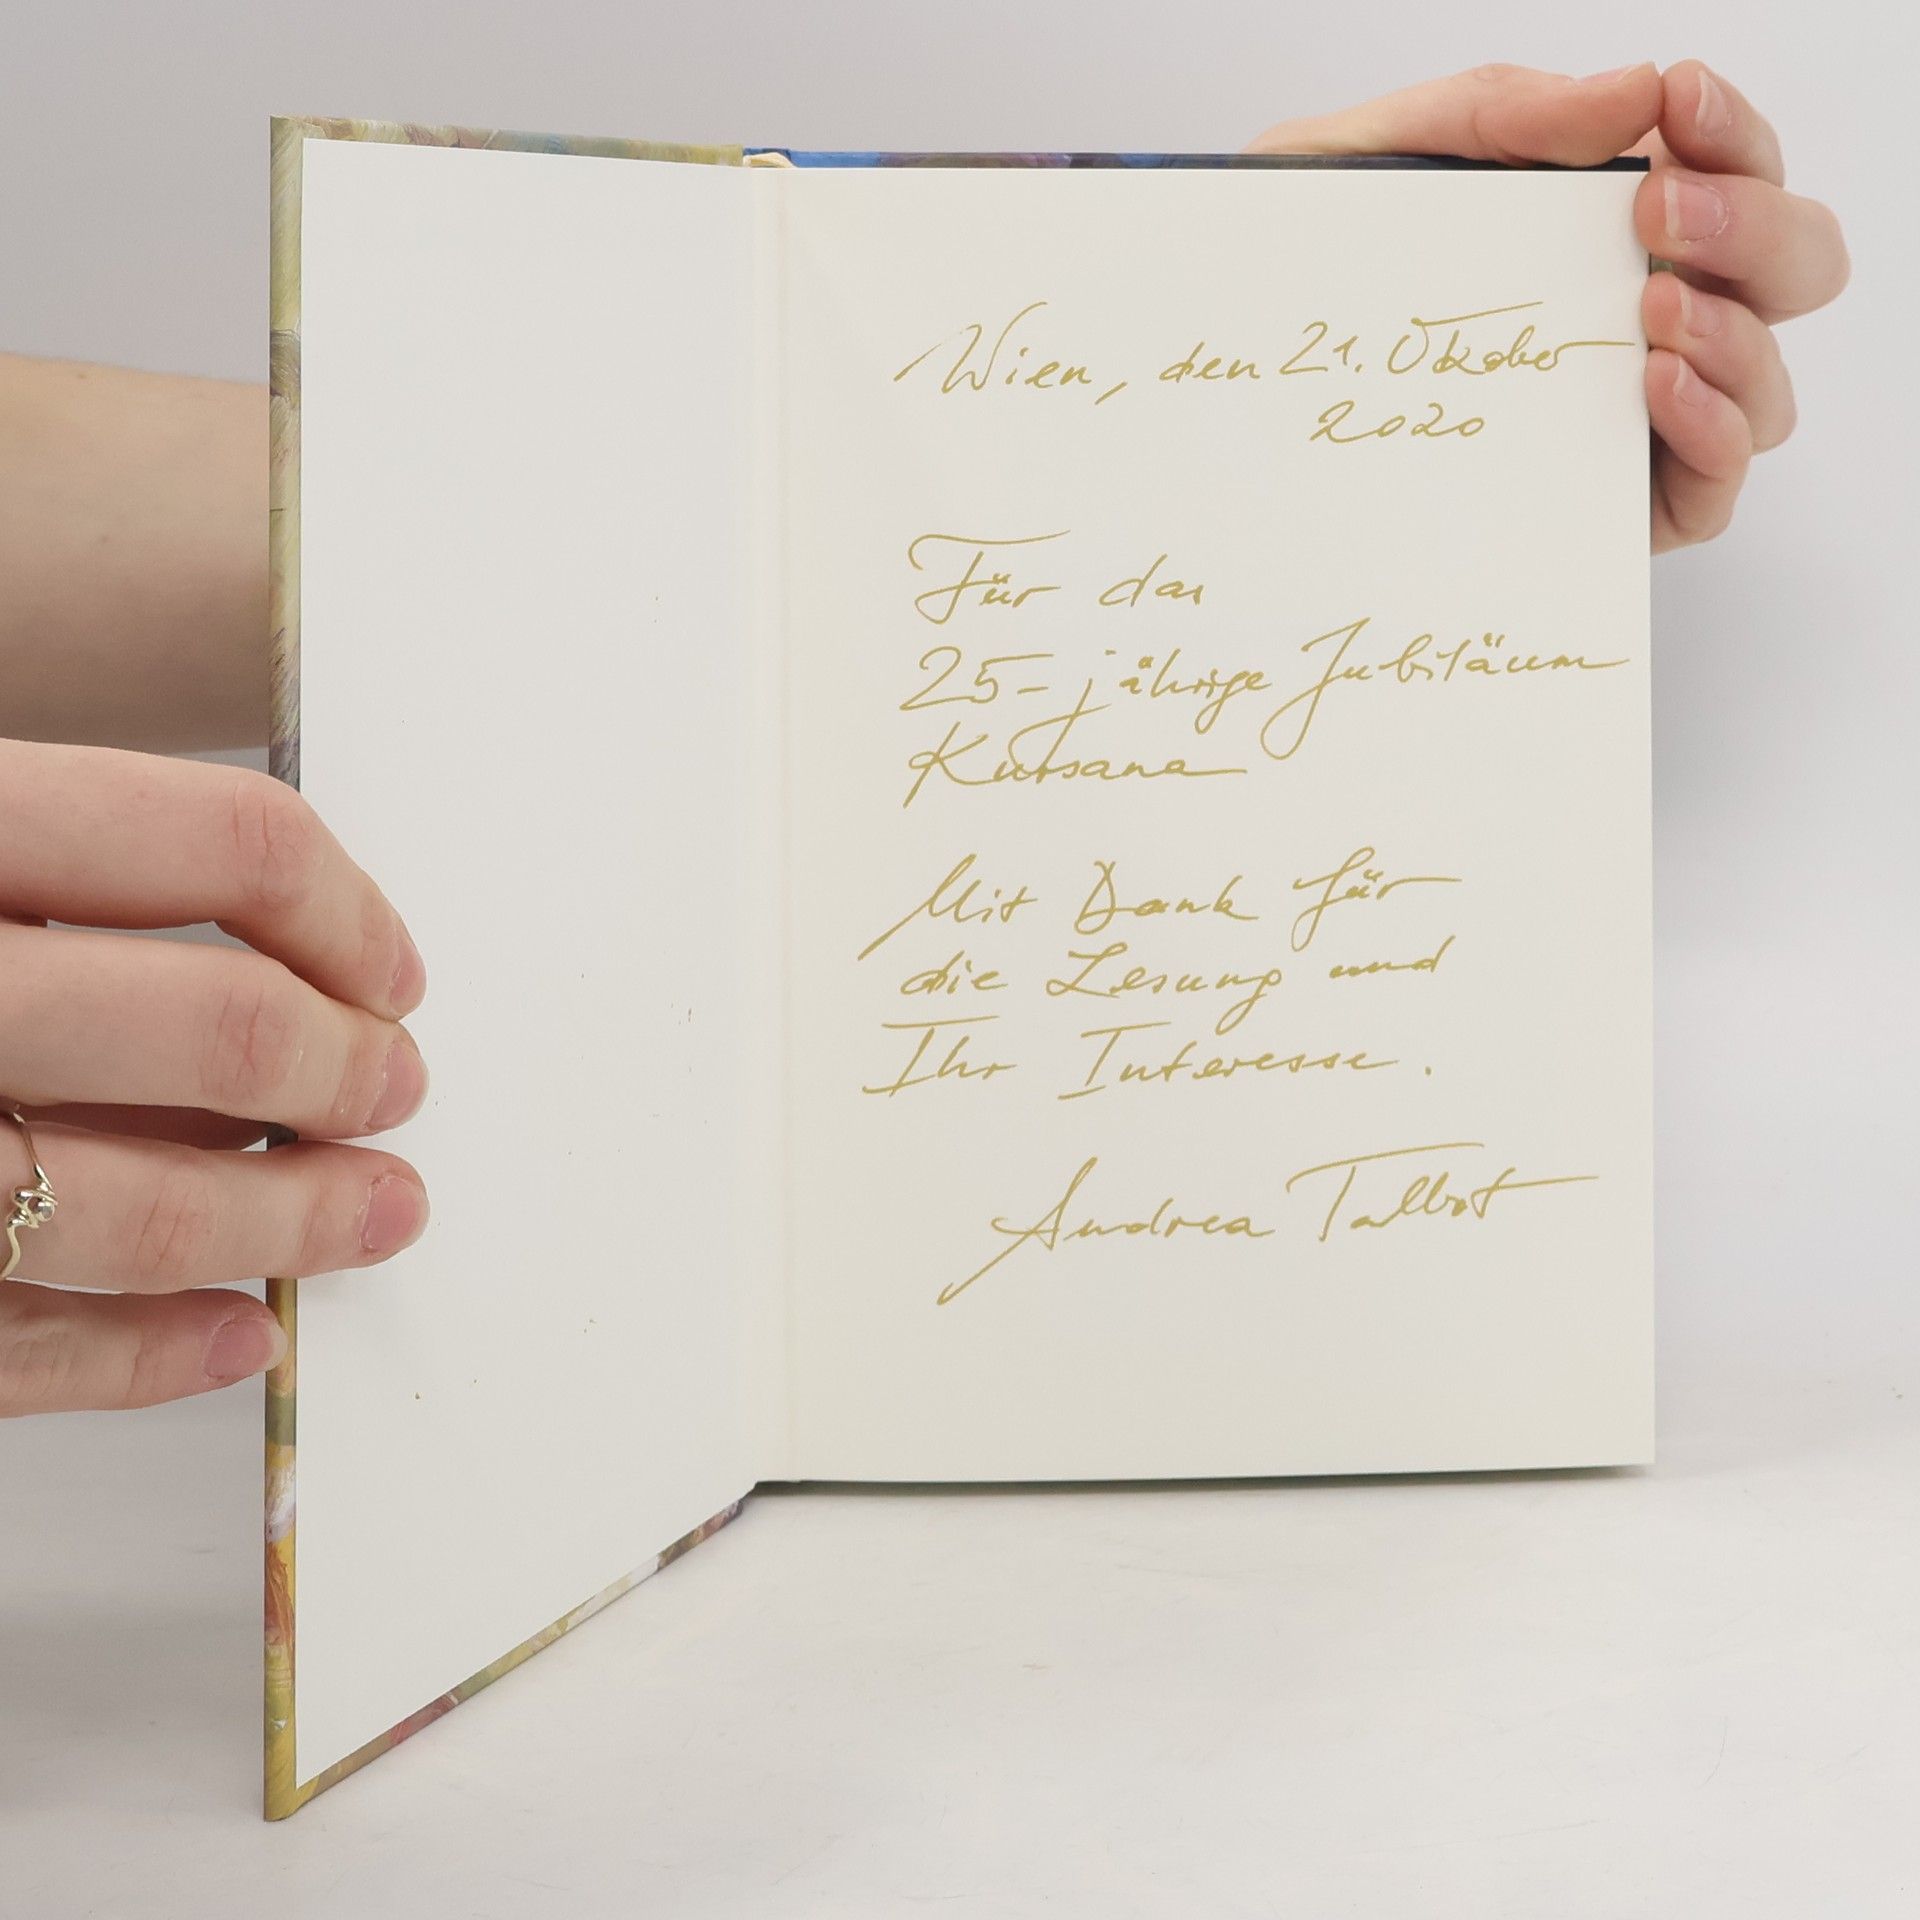 Wien, den 21. Oktober
2020
Für das
25-jährige Jubiläum
Kursana
Mit Dank für
die Lesung und
Ihr Interesse.
Andrea Talbot